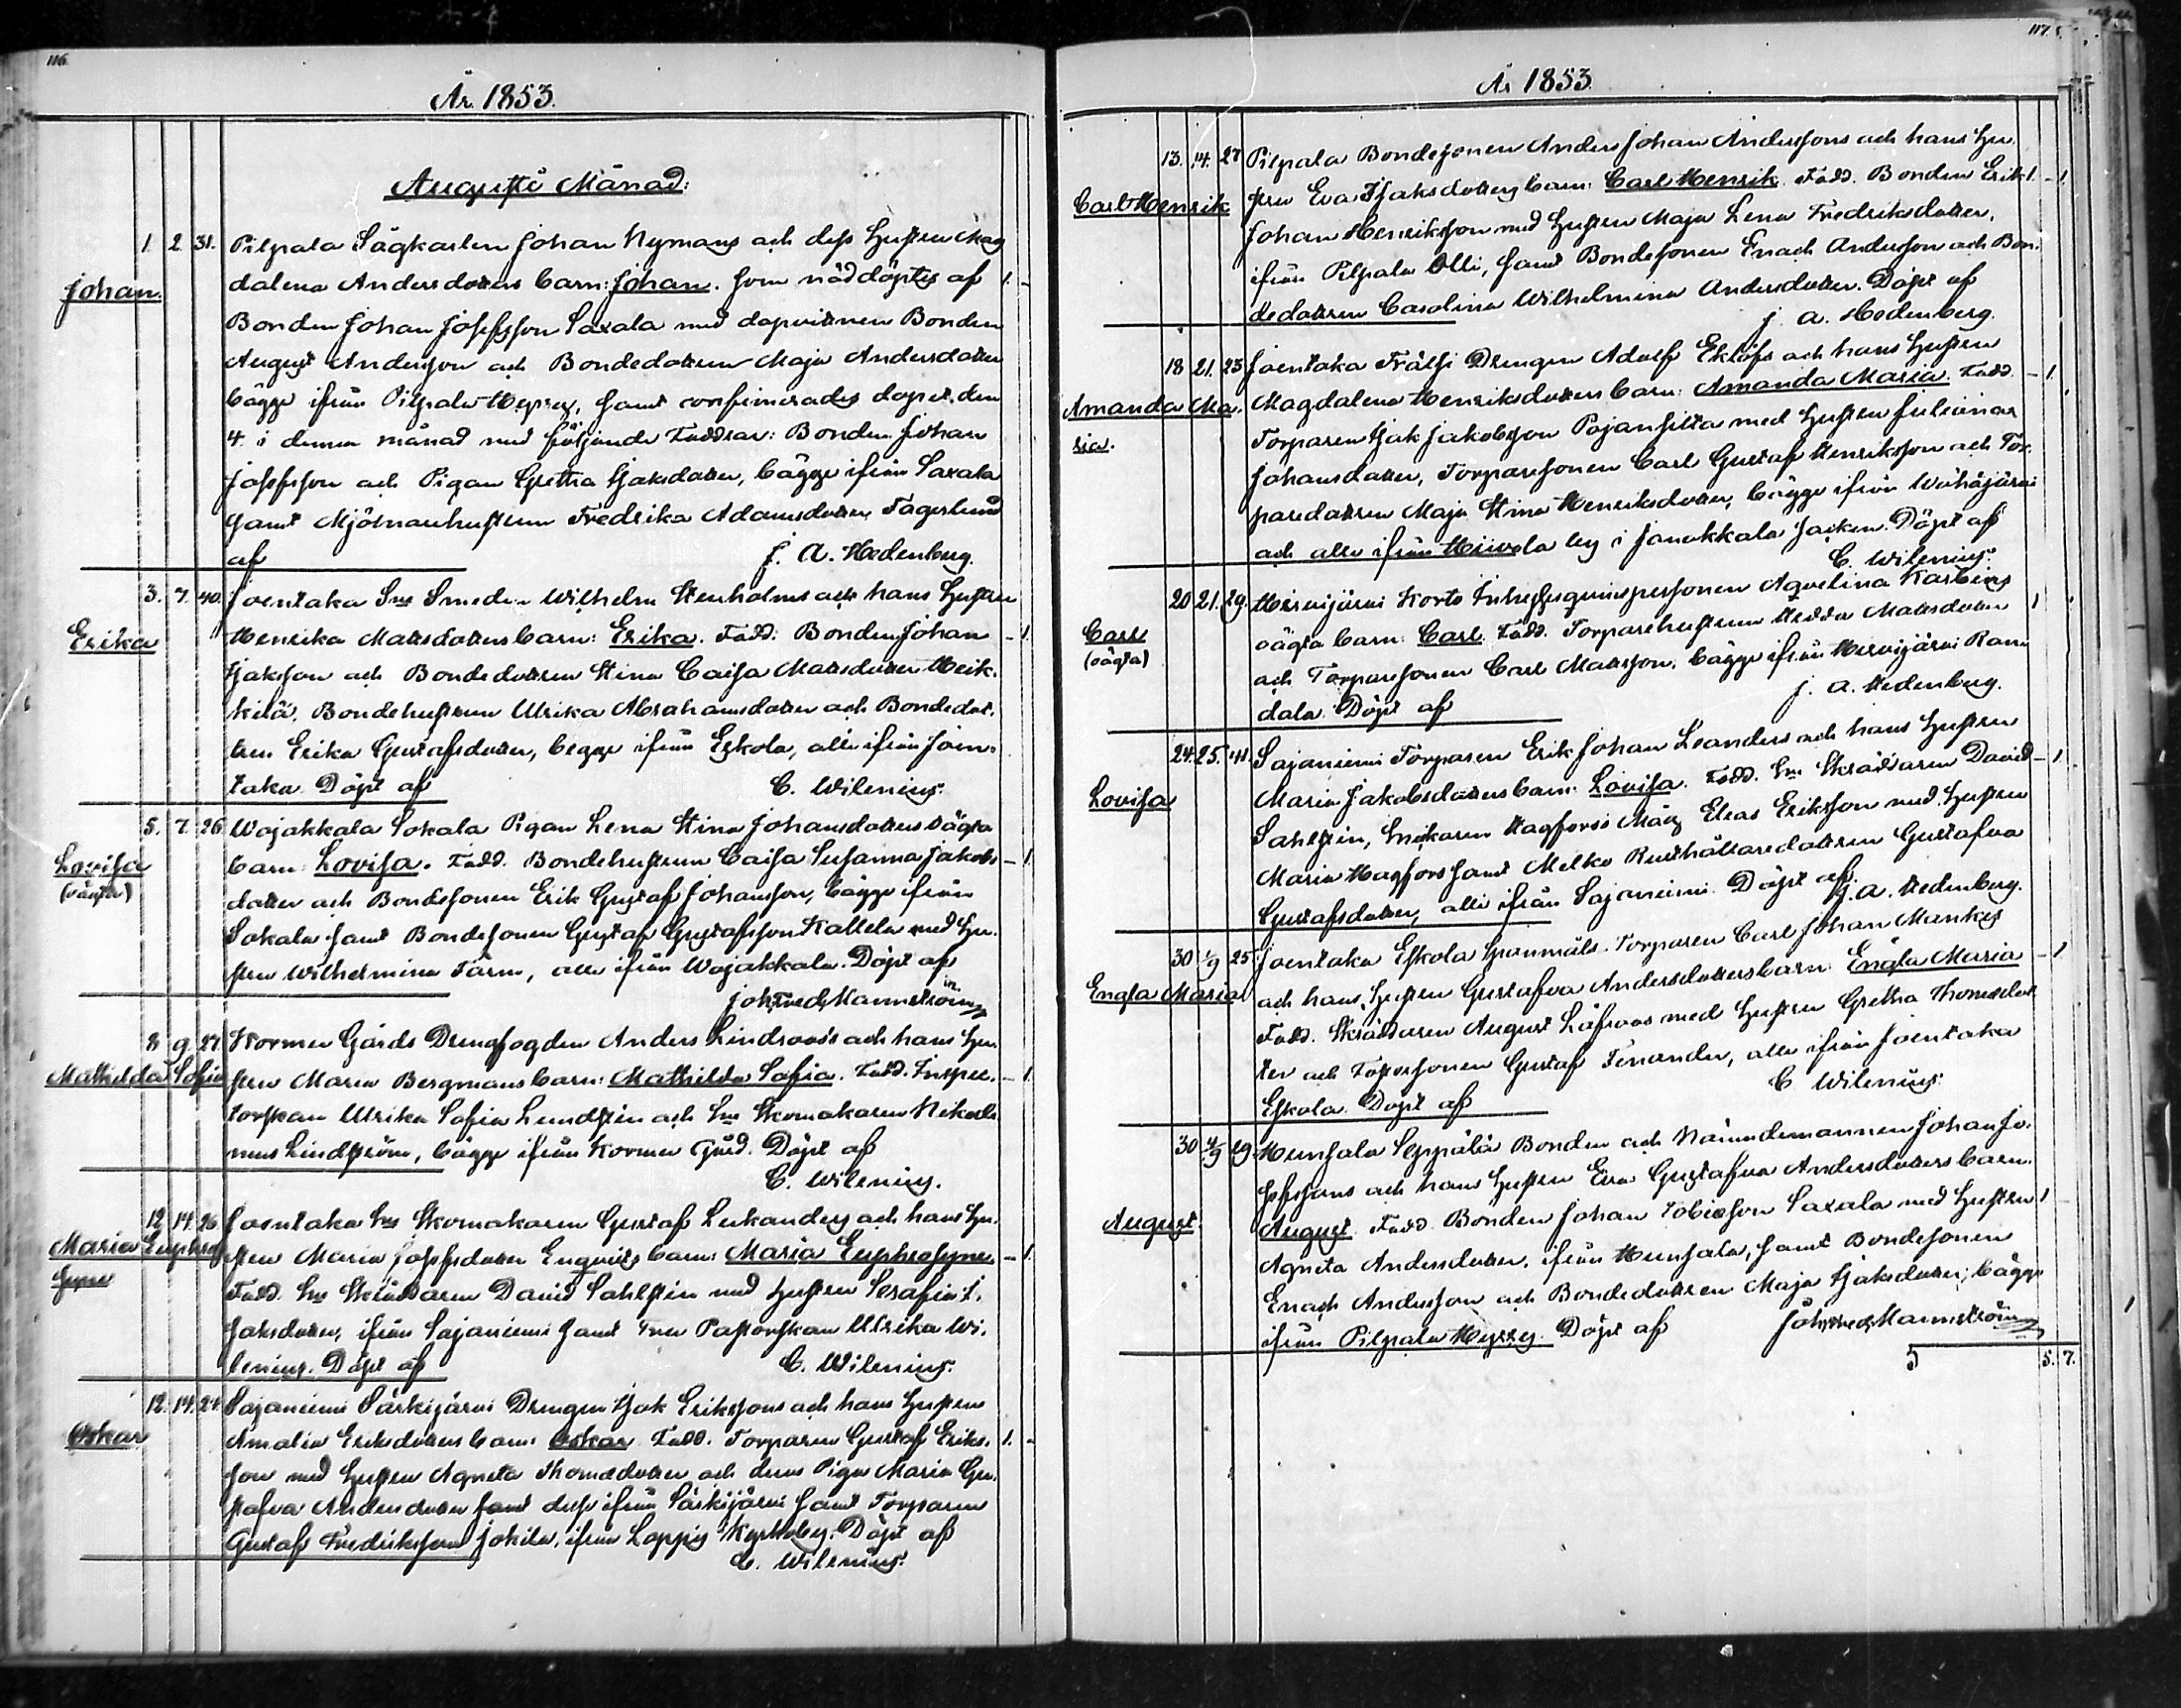 116.
År 1853.
Augusti Månad:
Johan.
1. 2. 31. Pilpala Sågkarlen Johan Nymans och dess Hustru Mag
dalena Andersdotters barn: Johan. som nöddöptes af 1. -
Bonden Johan Josefsson Saxala med dopvittnen Bonden
August Andersson och Bondedottren Maja Andersdotter
bägge ifrån Pilpala, samt confirmerades dopet den
4. i denna månad med följande Faddrar: Bonden Johan
Josefsson och Pigan Gretha Isaksdotter, bägge ifrån Saxala
samt Mjölnarehustrun Fredrika Adamsdotter Fagerlund
af J. A. Hedenberg.
Erika
3. 7. 40. Joentaka Sne Smeden Wilhelm Stenholms och hans Hustru
Henrika Mattsdotters barn: Erika. Fadd: Bonden Johan - 1.
Isaksson och Bondedottren Stina Caisa Mattsdotter Heik-
kilä, Bondehustrun Ulrika Abrahamsdotter och Bondedot-
tren Erika Gustafsdotter, begge ifrån Eskola, alla ifrån Joen-
taka. Döpt af C. Wilenius.
Lovisa
(oägta)
5. 7. 26. Wojakkala Sokala Pigan Lena Stina Johansdotters oägta
barn: Lovisa. Fadd. Bondehustrun Caisa Susanna Jakobs - 1.
dotter och Bondesonen Erik Gustaf Johansson, bägge ifrån
Sokala samt Bondesonen Gustaf Gustafsson Kallela med Hu-
stru Wilhelmina Färm, alla ifrån Wojakkala. Döpt af
Joh. Fred. Mannström
Mathilda Sofia
8. 9. 27. Kormu Gårds Drengfogden Anders Lindroos's och hans Hu-
stru Maria Bergmans barn: Mathilda Sofia. Fadd. Inspec- - 1.
torskan Ulrika Sofia Lundstén och Sne Skomakaren Nikode-
mus Lindström, bägge ifrån Kormu Gård. Döpt af
C. Wilenius.
Maria Euphro
syne
12. 14. 26. Joentaka Sne Skomakaren Gustaf Lukanders och hans Hu-
stru Maria Josefsdotter Enqvists barn: Maria Euphrosyne. - 1.
Fadd. Sne Skräddaren David Sahlstén med Hustru Serafia I-
saksdotter, ifrån Sajaniemi samt Fru Pastorskan Ulrika Wi-
lenius. Döpt af C. Wilenius.
Oskar
12. 14. 24. Sajaniemi Särkijärvi Drengen Isak Erikssons och hans Hustru
Amalia Eriksdotters barn: Oskar. Fadd. Torparen Gustaf Eriks- 1. -
son med Hustru Agneta Thomædotter och dess Piga Maria Gu-
stafva Andersdotter samt desse ifrån Särkijärvi samt Torparen
Gustaf Fredriksson Jokila, ifrån Loppis Kyrkoby. Döpt af
C. Wilenius.
117.
År 1853.
Carl Henrik
13. 14. 27 Pilpala Bondesonen Anders Johan Anderssons och hans Hu-
stru Eva Isaksdotters barn: Carl Henrik. Fadd. Bonden Erik 1. - 1.
Johan Henriksson med Hustru Maja Lena Fredriksdotter,
ifrån Pilpala Olli, samt Bondesonen Enach Andersson och Bon-
dedottren Carolina Wilhelmina Andersdotter. Döpt af
J. A. Hedenberg.
Amanda Ma-
ria.
18. 21. 23 Joentaka Frälsi Drengen Adolf Eklöfs och hans Hustru
Magdalena Henriksdotters barn: Amanda Maria. Fadd. - 1.
Torparen Isak Jakobsson Pajansilta med Hustru Juliana
Johansdotter, Torparesonen Carl Gustaf Henriksson och Tor-
paredottren Maja Stina Henriksdotter, bägge ifrån Wähäjärvi
och alla ifrån Hiivola by i Janakkala Socken. Döpt af
C. Wilenius.
Carl
(oägta)
20. 21. 29. Hirvijärvi Korto Inhysesqvinspersonen Aqvelina Karlbergs
oägta barn: Carl. Fadd. Torparehustrun Hedda Mattsdotter 1
och Torparesonen Carl Mattsson, bägge ifrån Hirvijärvi Ran-
dala. Döpt af J. A. Hedenberg.
Lovisa
24. 25. 41. Sajaniemi Torparen Erik Johan Leanders och hans Hustru
Maria Jakobsdotters barn: Lovisa. Fadd. Sne Skräddaren David - 1.
Sahlstén, Snickaren Hagfors's Måg Elias Eriksson med Hustru
Maria Hagfors samt Melko Rusthållaredottren Gustafva
Gustafsdotter, alla ifrån Sajaniemi. Döpt af J. A. Hedenberg.
Engla Maria
30 1/9 25. Joentaka Eskola Spannmåls-Torparen Carl Johan Mankes
och hans Hustru Gustafva Andersdotters barn: Engla Maria - 1
Fadd. Skräddaren August Löfroos med Hustru Gretha Thomædot-
ter och Torparesonen Gustaf Finander, alla ifrån Joentaka
Eskola. Döpt af C. Wilenius.
August
30 4/9 29. Hunsala Seppälä Bonden och Nämndemannen Johan Jo-
sefssons och hans Hustru Eva Gustafva Andersdotters barn:
August. Fadd. Bonden Johan Tobiasson Saxala med Hustru 1
Agneta Andersdotter, ifrån Hunsala, samt Bondesonen
Enach Andersson och Bondedottren Maja Isaksdotter, bägge
ifrån Pilpala Hyrsy. Döpt af Joh. Fred. Mannström
5. 7.